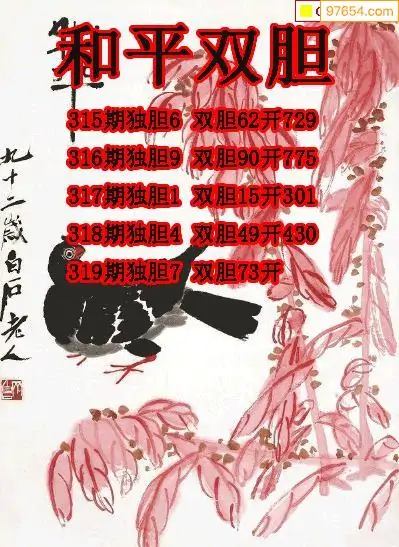 97654.com
和平双胆
315期独胆6 双胆62开729
316期独胆9 双胆90开775
317期独胆1 双胆15开301
318期独胆4 双胆49开430
319期独胆7 双胆73开
九十二岁白石老人